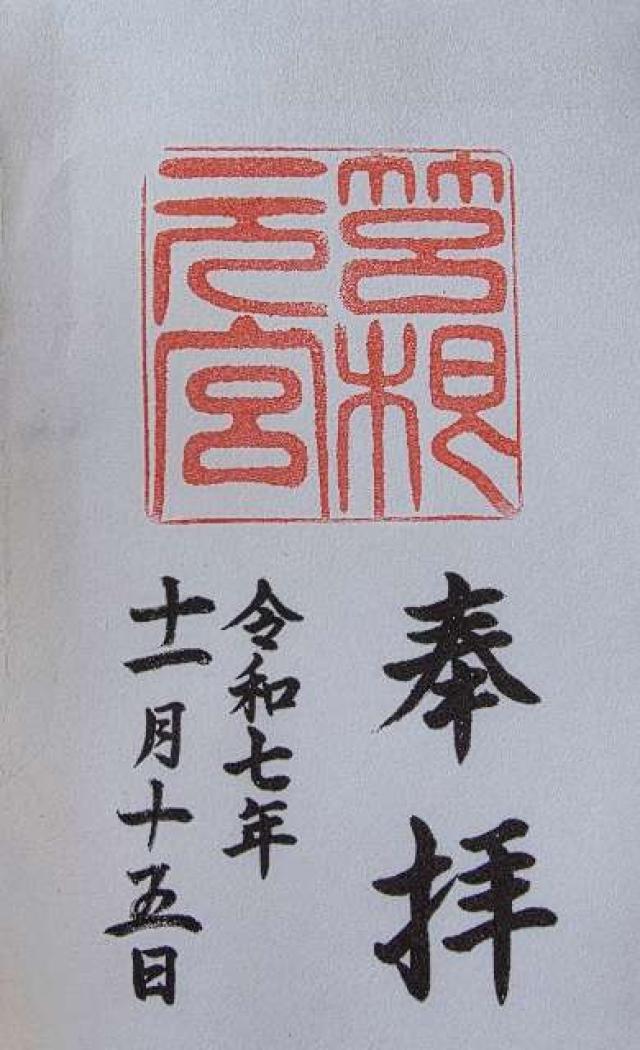 筥根
元宮
奉拝
令和七年
十一月十五日